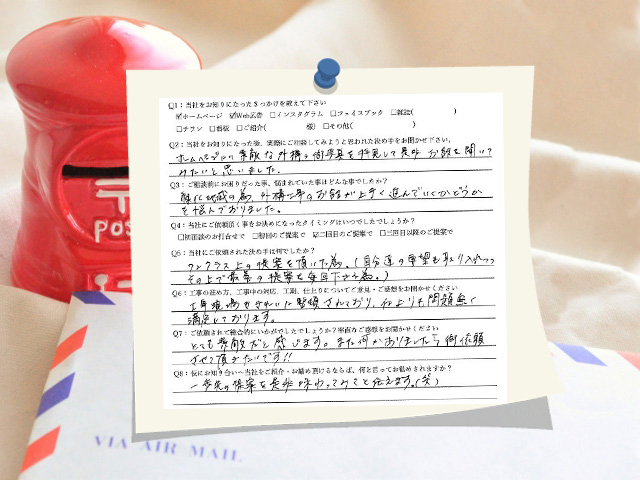 Q1：当社をお知りになったきっかけを教えて下さい
☑ホームページ ☑Web広告 □インスタグラム □フェイスブック □雑誌( )
□チラシ □看板 □ご紹介( 様) □その他( )
Q2：当社をお知りになった後、実際にご相談してみようと思われた決め手をお聞かせ下さい。
ホームページの素敵な外構の御写真を拝見して是非お話を聞いて
みたいと思いました。
Q3：ご相談前にお困りだった事、悩まれていた事はどんな事でしたか？
離れた地域の為、外構工事のお話が上手く進んでいくかどうか
を悩んでおりました。
Q4：当社にご依頼頂く事をお決めになったタイミングはいつでしたでしょうか？
□初回談のお打合せで □初回のご提案で ☑二回目のご提案で □三回目以降のご提案で
Q5：当社にご依頼された決め手は何でしたか？
ワンクラス上の提案を頂いた為。(自分達の要望も取り入れつつ
その上で最善の提案を毎回下さる為。)
Q6：工事の進め方、工事中の対応、工期、仕上りについてご意見・ご感想をお聞かせください
工事現場もきれいに整頓されており、仕上りも問題無く
満足しております。
Q7：ご依頼されて総合的にいかがでしたでしょうか？率直なご感想をお聞かせください
とても素敵だと感じます。また何かありましたら御依頼
させて頂きたいです!!
Q8：仮にお知り合いへ当社をご紹介・お勧め頂けるならば、何と言ってお勧めされますか？
一歩先の提案を是非味わってみてと伝えます。(笑)
〒
POS
VIA AIR MAIL